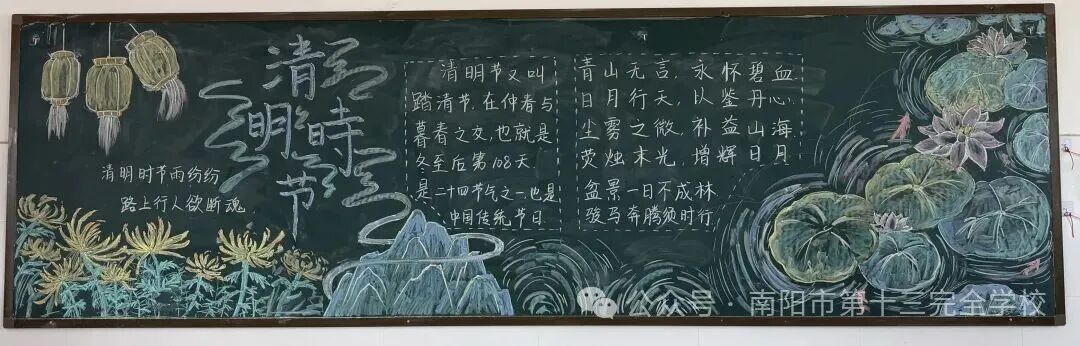 清明时节
清明时节雨纷纷
路上行人欲断魂
清明节又叫
踏清节,在仲春与
暮春之交,也就是
冬至后第108天
是二十四节气之一,也是
中国传统节日
青山无言,永怀碧血
日月行天,以鉴丹心
尘雾之微,补益山海
荧烛末光,增辉日月
盆景一日不成林
骏马奔腾须时行
公众号·南阳市第十三完全学校